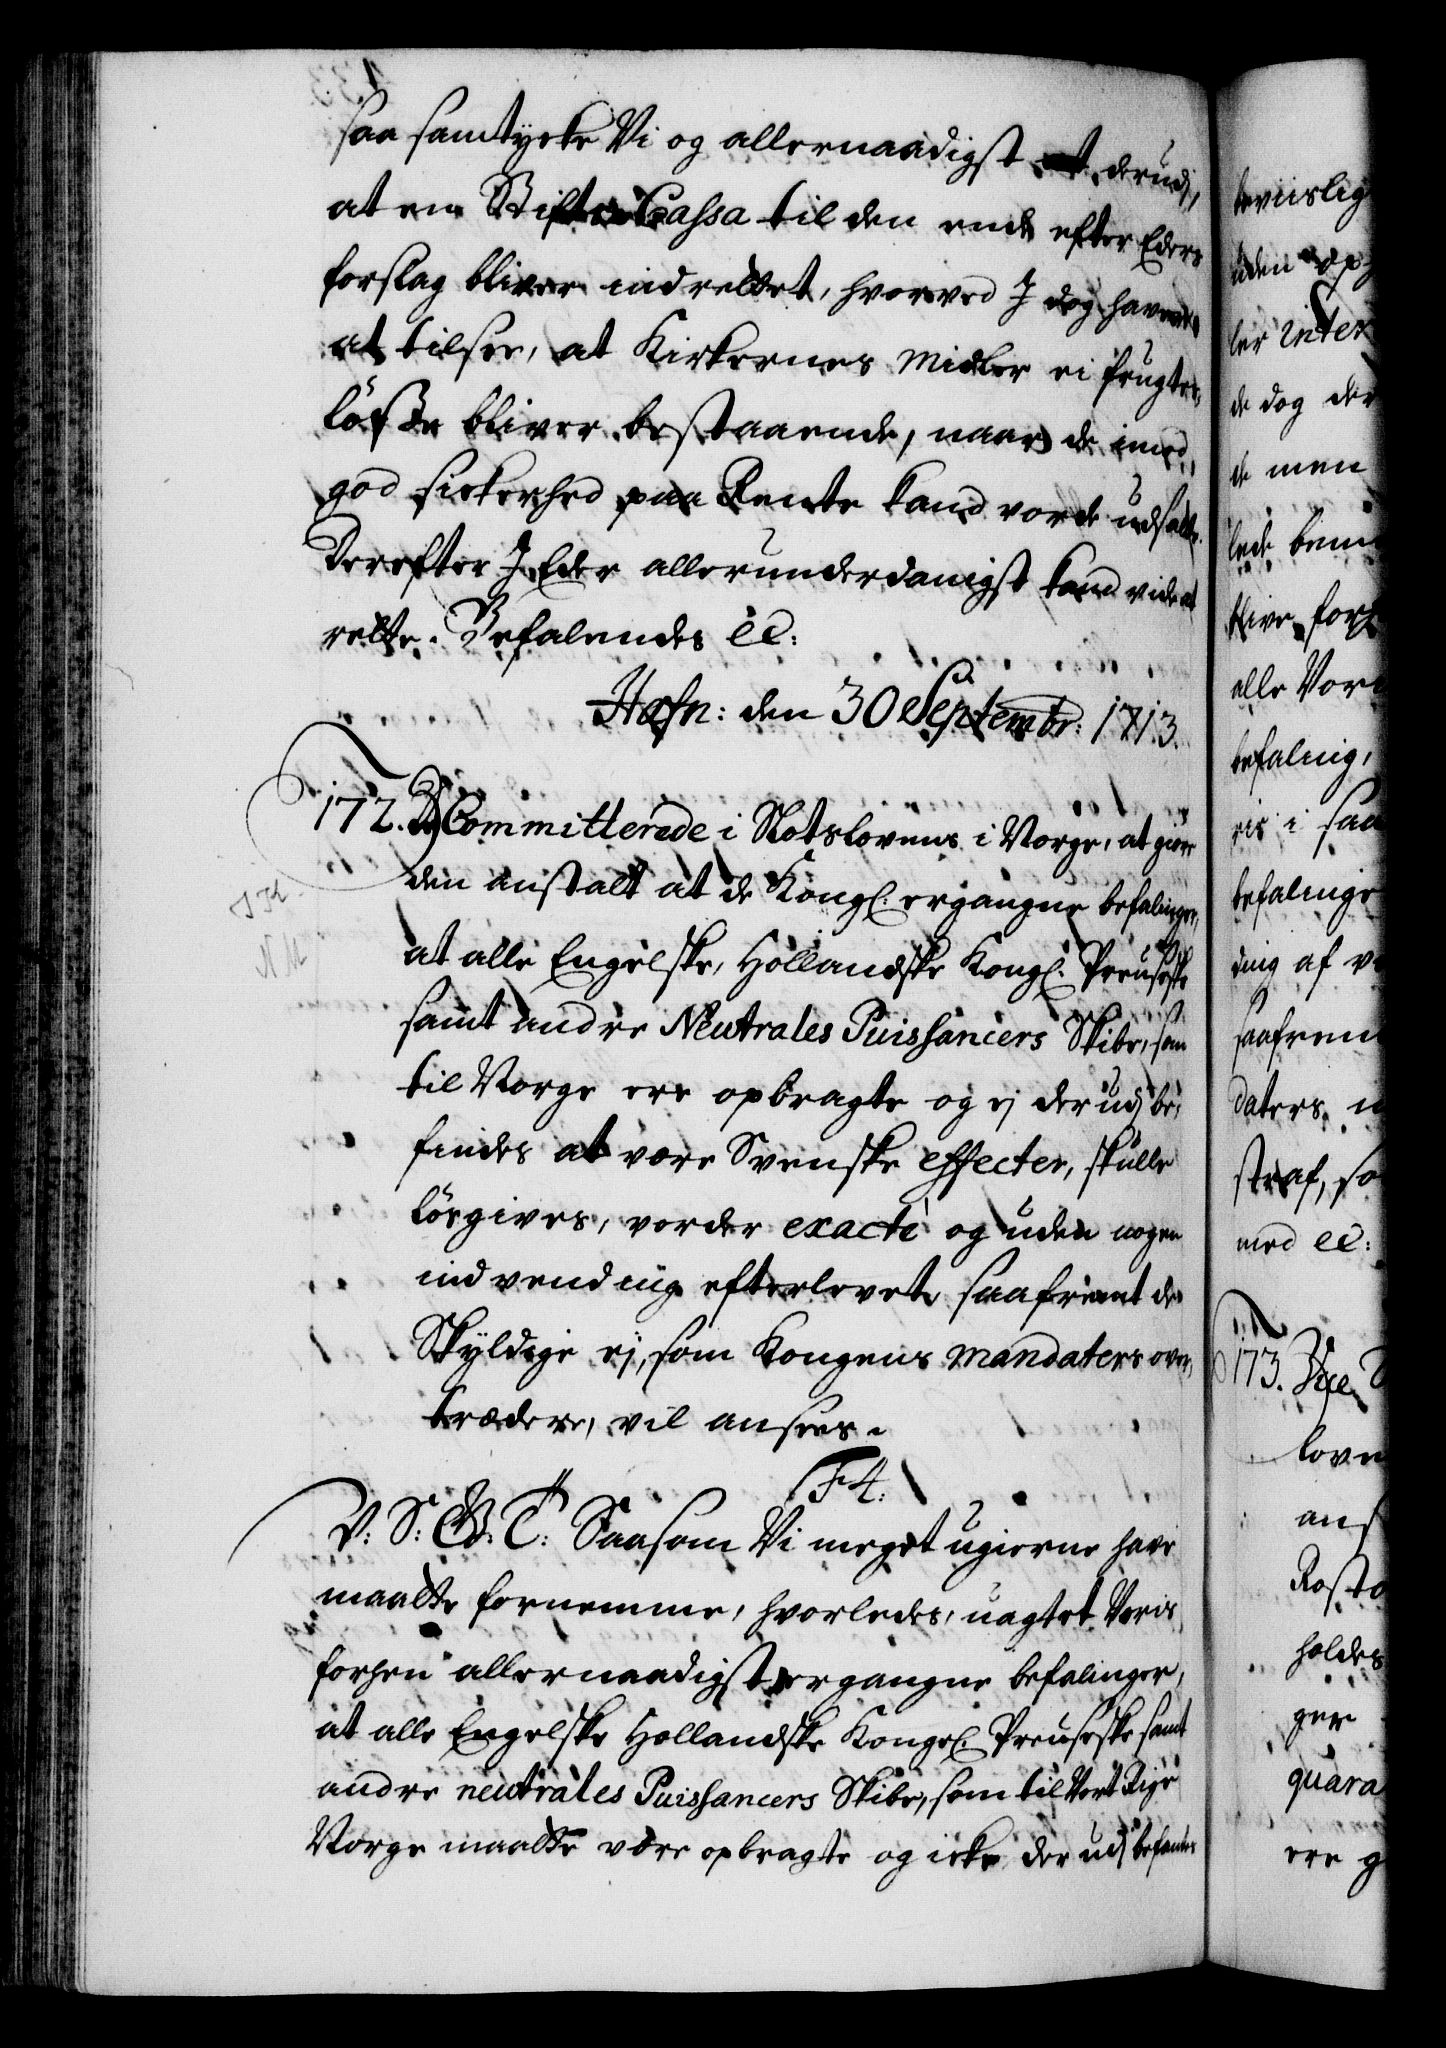 saa samtycke Vi og allernaadigst derudj,
at en Stifts Cassa til den ende efter Eders
forslag bliver indrettet, hvorved I dog haver
at tilsee, at Kirkernes Midler ei frugtes,
löse bliver bestaaende, naar de imod
god sickerhed paa Rente kand vorde udsatte.
Derefter I Eder allerunderdanigst kand vide at
rette. Befalendes ec:
Hafn: den 30 Septembr: 1713.
172. Committerede i Slotsloven i Norge, at giøre
den anstalt at de Kongl. ergangne befalinger,
at alle Engelske, Hollandske Kongl. Preuseske
samt andre Neutrales Puissancers Skibe, som
til Norge ere opbragte og ej derudj be,
findes at være Svenske effecter, skulle
lösgives, vorder exactè og uden nogen
indvending efterlevet, saafremt de
Skyldige ej, som Kongens mandaters over,
trædere, vil ansees.
F 4:
V: S: G. T: Saasom Vi meget ugierne have
maatte fornemme, hvorledes, uagtet Voris
forhen allernaadigst ergangne befalinger,
at alle Engelske Hollandske Kongel. Preuseske samt
andre neutrales Puissancers Skibe, som til Vort Rige
Norge maatte være opbragte og icke derudj befandtes
beviislig
uden op
ler inter
de dog der
de men
lede
blive forh
alle Vor
befaling,
ris i saa
befalinge
ding af v
saafrem
daters
straf, so
med ec:
173.
love
ans
Rosto
holdes
ger
quara
ere g